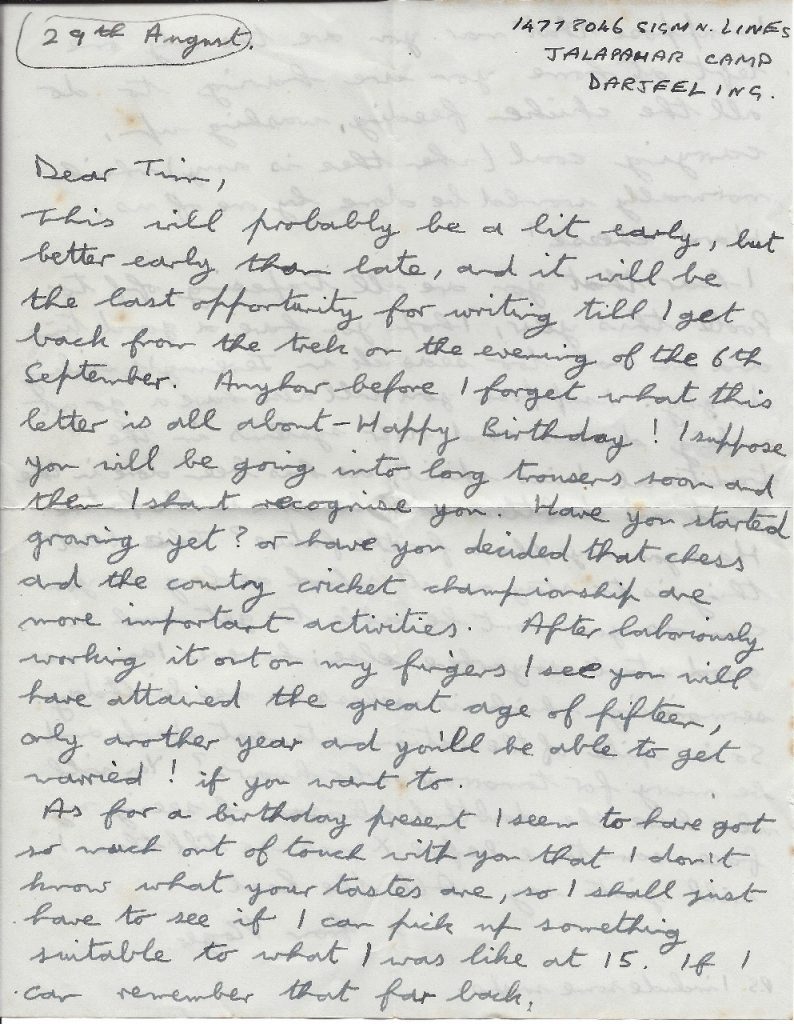 29th August.
14778046 SIGMN. LINES
JALAPAHAR CAMP
DARJEELING.
Dear Tim,
This will probably be a bit early, but
better early than late, and it will be
the last opportunity for writing till I get
back from the trek on the evening of the 6th
September. Anyhow before I forget what this
letter is all about - Happy Birthday! I suppose
you will be going into long trousers soon and
then I shant recognise you. Have you started
growing yet? or have you decided that chess
and the country cricket championship are
more important activities. After laboriously
working it out on my fingers I see you will
have attained the great age of fifteen,
only another year and you'll be able to get
married! if you want to.
As for a birthday present I seem to have got
so much out of touch with you that I don't
know what your tastes are, so I shall just
have to see if I can pick up something
suitable to what I was like at 15. If I
can remember that far back.